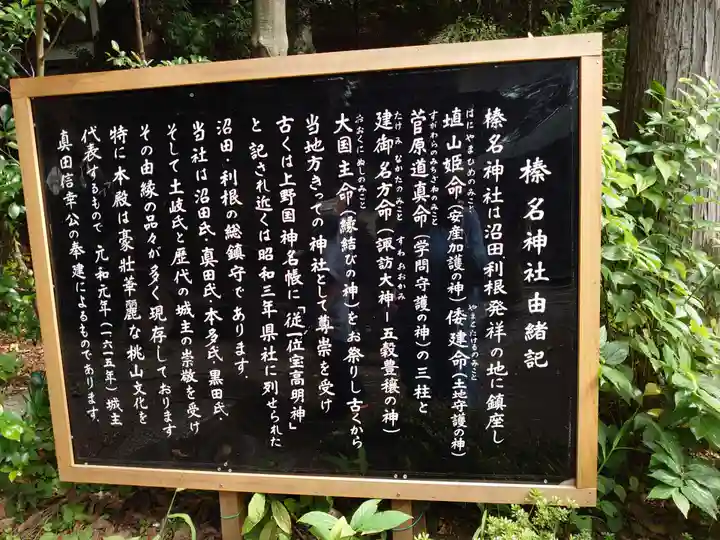 榛名神社由緒記
榛名神社は沼田利根発祥の地に鎮座し
はにやまひめのみこと
やまとたけるのみこと
埴山姫命(安産加護の神)倭建命(土地守護の神)
すがわらのみちざねのみこと
菅原道真命(学問守護の神)の三柱と
たけみなかたのみこと
すわおおかみ
建御名方命(諏訪大神ー五穀豊穣の神)
おおくにぬしのみこと
大国主命(縁結びの神)をお祭りし古くから
当地方きっての神社として尊崇を受け
古くは上野国神名帳に「従一位宝高明神」
と記され近くは昭和三年県社に列せられた
沼田・利根の総鎮守であります。
当社は沼田氏・真田氏・本多氏、黒田氏・
そして土岐氏と歴代の城主の崇敬を受け
その由縁の品々が多く現存しております
特に本殿は豪壮華麗な桃山文化を
代表するもので 元和元年(一六一五年)城主
真田信幸公の奉建によるものであります。